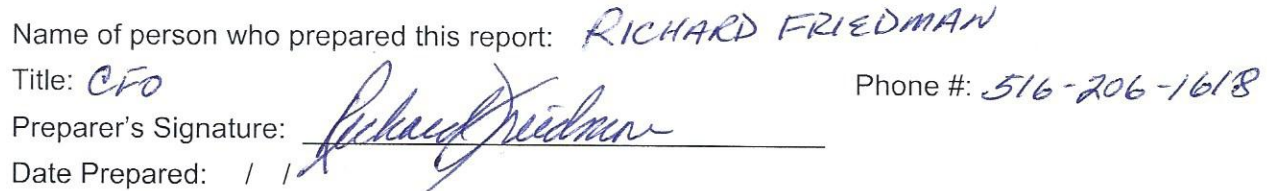 Name of person who prepared this report: RICHARD FRIEDMAN
Title: CFO Phone #: 516-206-1618
Preparer's Signature: Richard Friedman
Date Prepared: / /